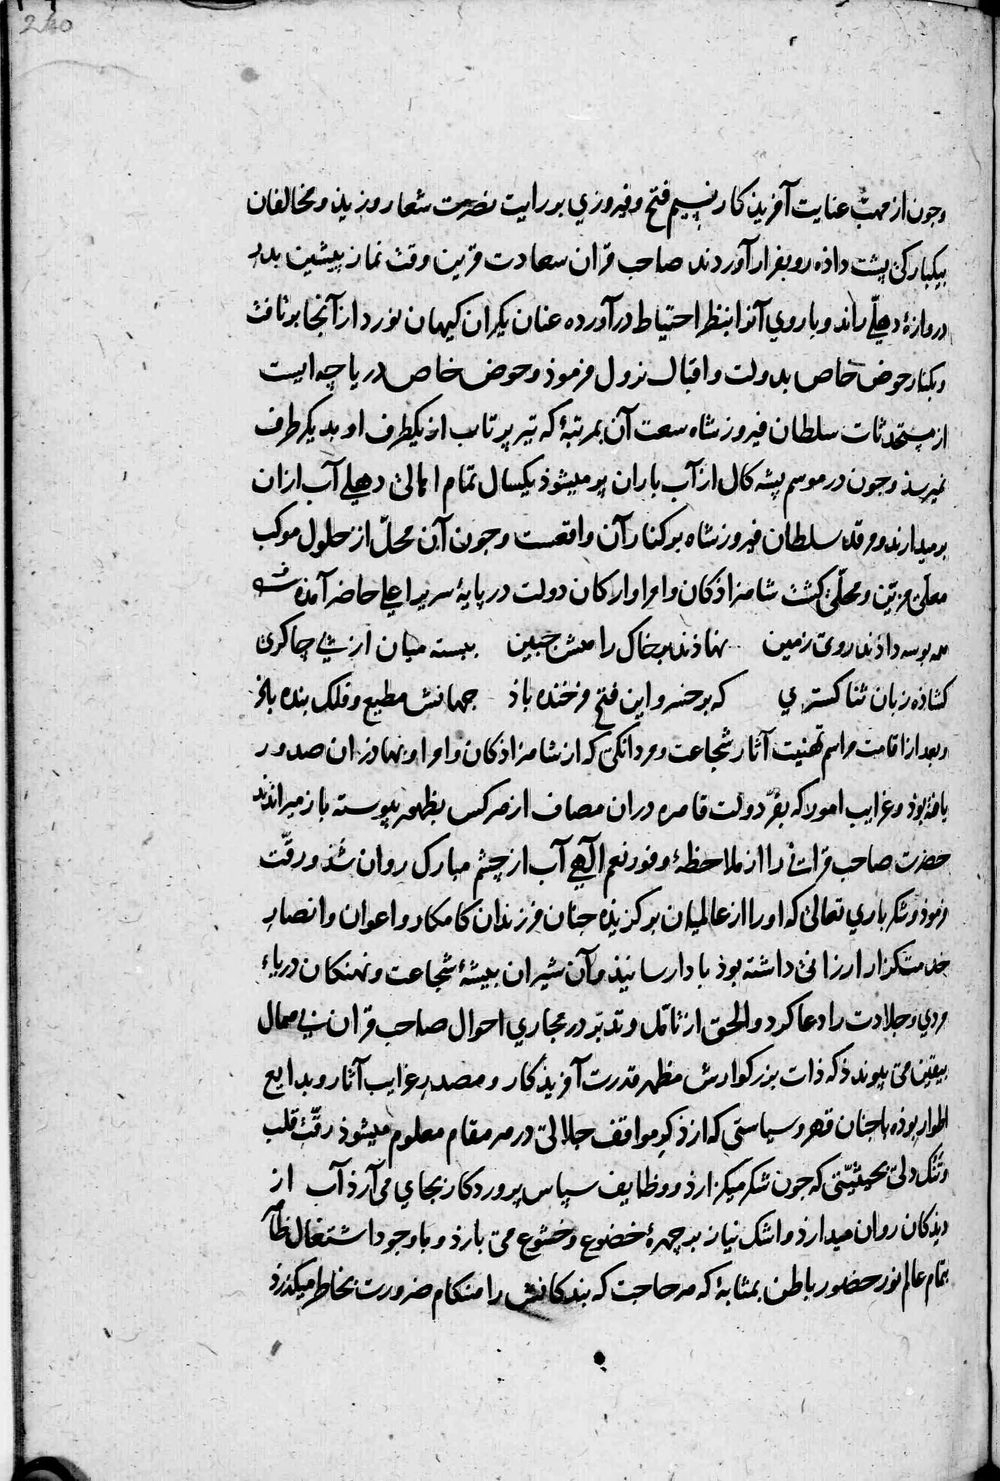 240
وجون از مهبّ عنایت آفریذ کار نسیم فتح و فیروزي بر رایت نصرت شعار وزیذ و مخالفان
بیکبارکی پشت داذه رو بفرار آوردند صاحب قران سعادت قرین وقت نماز پیشین بدر
دروازهٔ دهلی راند و باروي آنرا بنظر احتیاط درآورده عنان یکران کیهان نورد از آنجا برتافت
و بکنار حوض خاص بدولت و اقبال نزول فرموذ و حوض خاص دریاچه ایست
از مستحدثات سلطان فیروز شاه سعت آن بمرتبهٔ که تیر پرتاب از یکطرف او بدیکر طرف
نمیرسذ و جون در موسم پشه کال از آب باران پر میشوذ یکسال تمام اهالی دهلی آب ازان
برمیدارند و مرقد سلطان فیروز شاه بر کنار آن واقعست و جون آن محلّ از حلول موکب
معلّی مزیّن و محلّی کشت شاهزاذکان و امرا و ارکان دولت در پایهٔ سریر اعلی حاضر آمذه
همه بوسه داذند روی زمین نهاذند بر خاک رامش جبین ببسته میان از پی چاکری
کشاذه زبان ثنا کستري که بر خسرو این فتح فرخنده باذ جهانش مطیع و فلک بنده باذ
و بعد از اقامت مراسم تهنیت آثار شجاعت و مردانکی که از شاهزاذکان و امرا و بهادران صدور
یافته بوذ و غرایب امور که بفرّ دولت قاهره دران مصاف از هرکس بظهور پیوسته باز میراندند
حضرت صاحب قرانی را از ملاحظهٔ وفور نعم الهی آب از چشم مبارک روان شذ و رقّت
فرموذ و شکر باري تعالی که او را از عالمیان برکزیذه جنان فرزندان کامکار و اعوان و انصار
خدمتکزار ارزانی داشته بوذ باداء رسانیذ و آن شیران بیشهٔ شجاعت و نهنکان دریاء
مردي و جلادت را دعا کرد و الحق از تامّل و تدبّر در مجاري احوال صاحب قران بی همال
بیقین می پیوندذ که ذات بزرکوارش مظهر قدرت آفریذکار و مصدر غرایب آثار و بدایع
اطوار بوذه با جنان قهر و سیاستی که از ذکر مواقف جلالی در هر مقام معلوم میشوذ رقّت قلب
و تنک دلی بحیثیّتی که جون شکر میکزارذ و وظایف سپاس پروردکار بجاي می آرذ آب از
دیذکان روان میدارذ و اشک نیاز بر چهرهٔ خضوع و خشوع می بارذ و با وجود اشتغال ظاهر
بتمام عالم نور حضور باطن بمثابهٔ که هر حاجت که بندکانش را هنکام ضرورت بخاطر میکذرذ